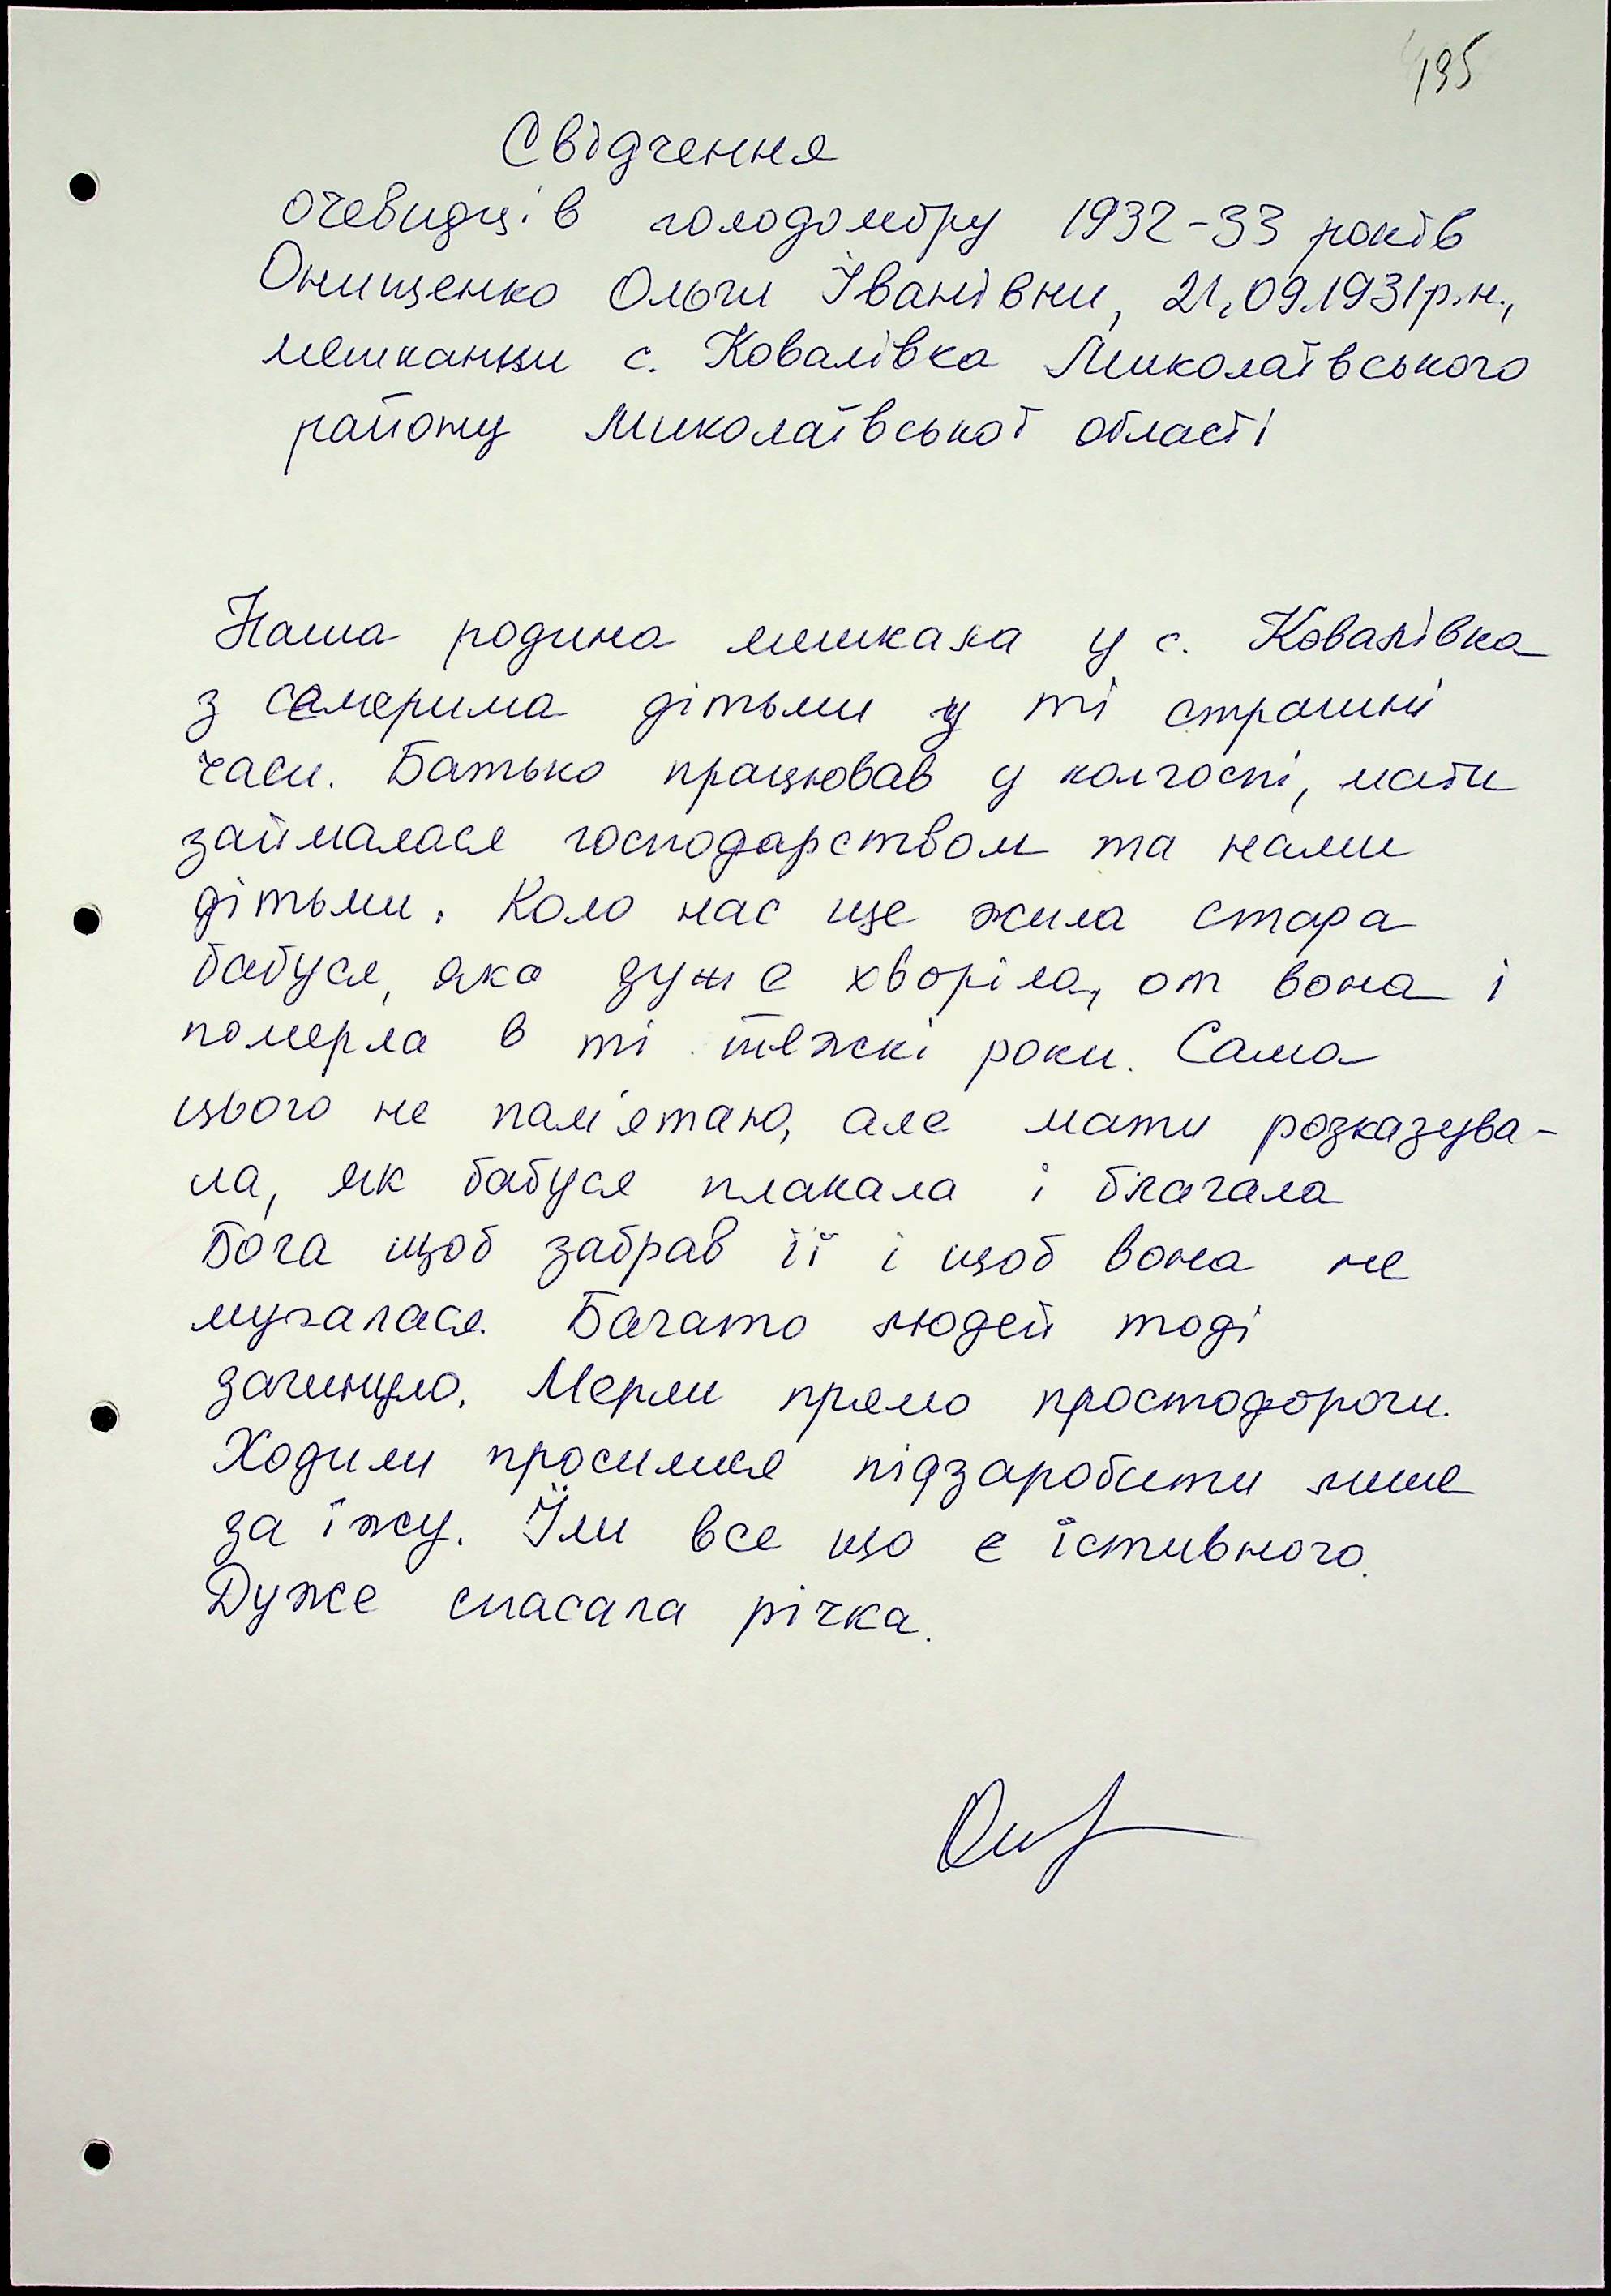 195
Свідчення
очевидців голодомору 1932-33 років
Онищенко Ольги Іванівни, 21.09.1931р.н.,
мешканки с. Ковалівка Миколаївського
району Миколаївської області
Наша родина мешкала у с. Ковалівка
з семерима дітьми у ті страшні
часи. Батько працював у колгоспі, мати
займалася господарством та нами
дітьми. Коло нас ще жила стара
бабуся, яка дуже хворіла, от вона і
померла в ті тяжкі роки. Сама
цього не пам'ятаю, але мати розказува-
ла, як бабуся плакала і благала
Бога щоб забрав її і щоб вона не
мучалася. Багато людей тоді
загинуло. Мерли прямо простодороги.
Ходили просилися підзаробити лише
за їжу. Їли все що є їстивного.
Дуже спасала річка.